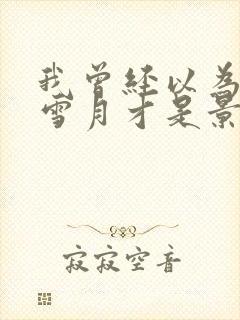 我曾经以為
雪月才是景
寂寂空音